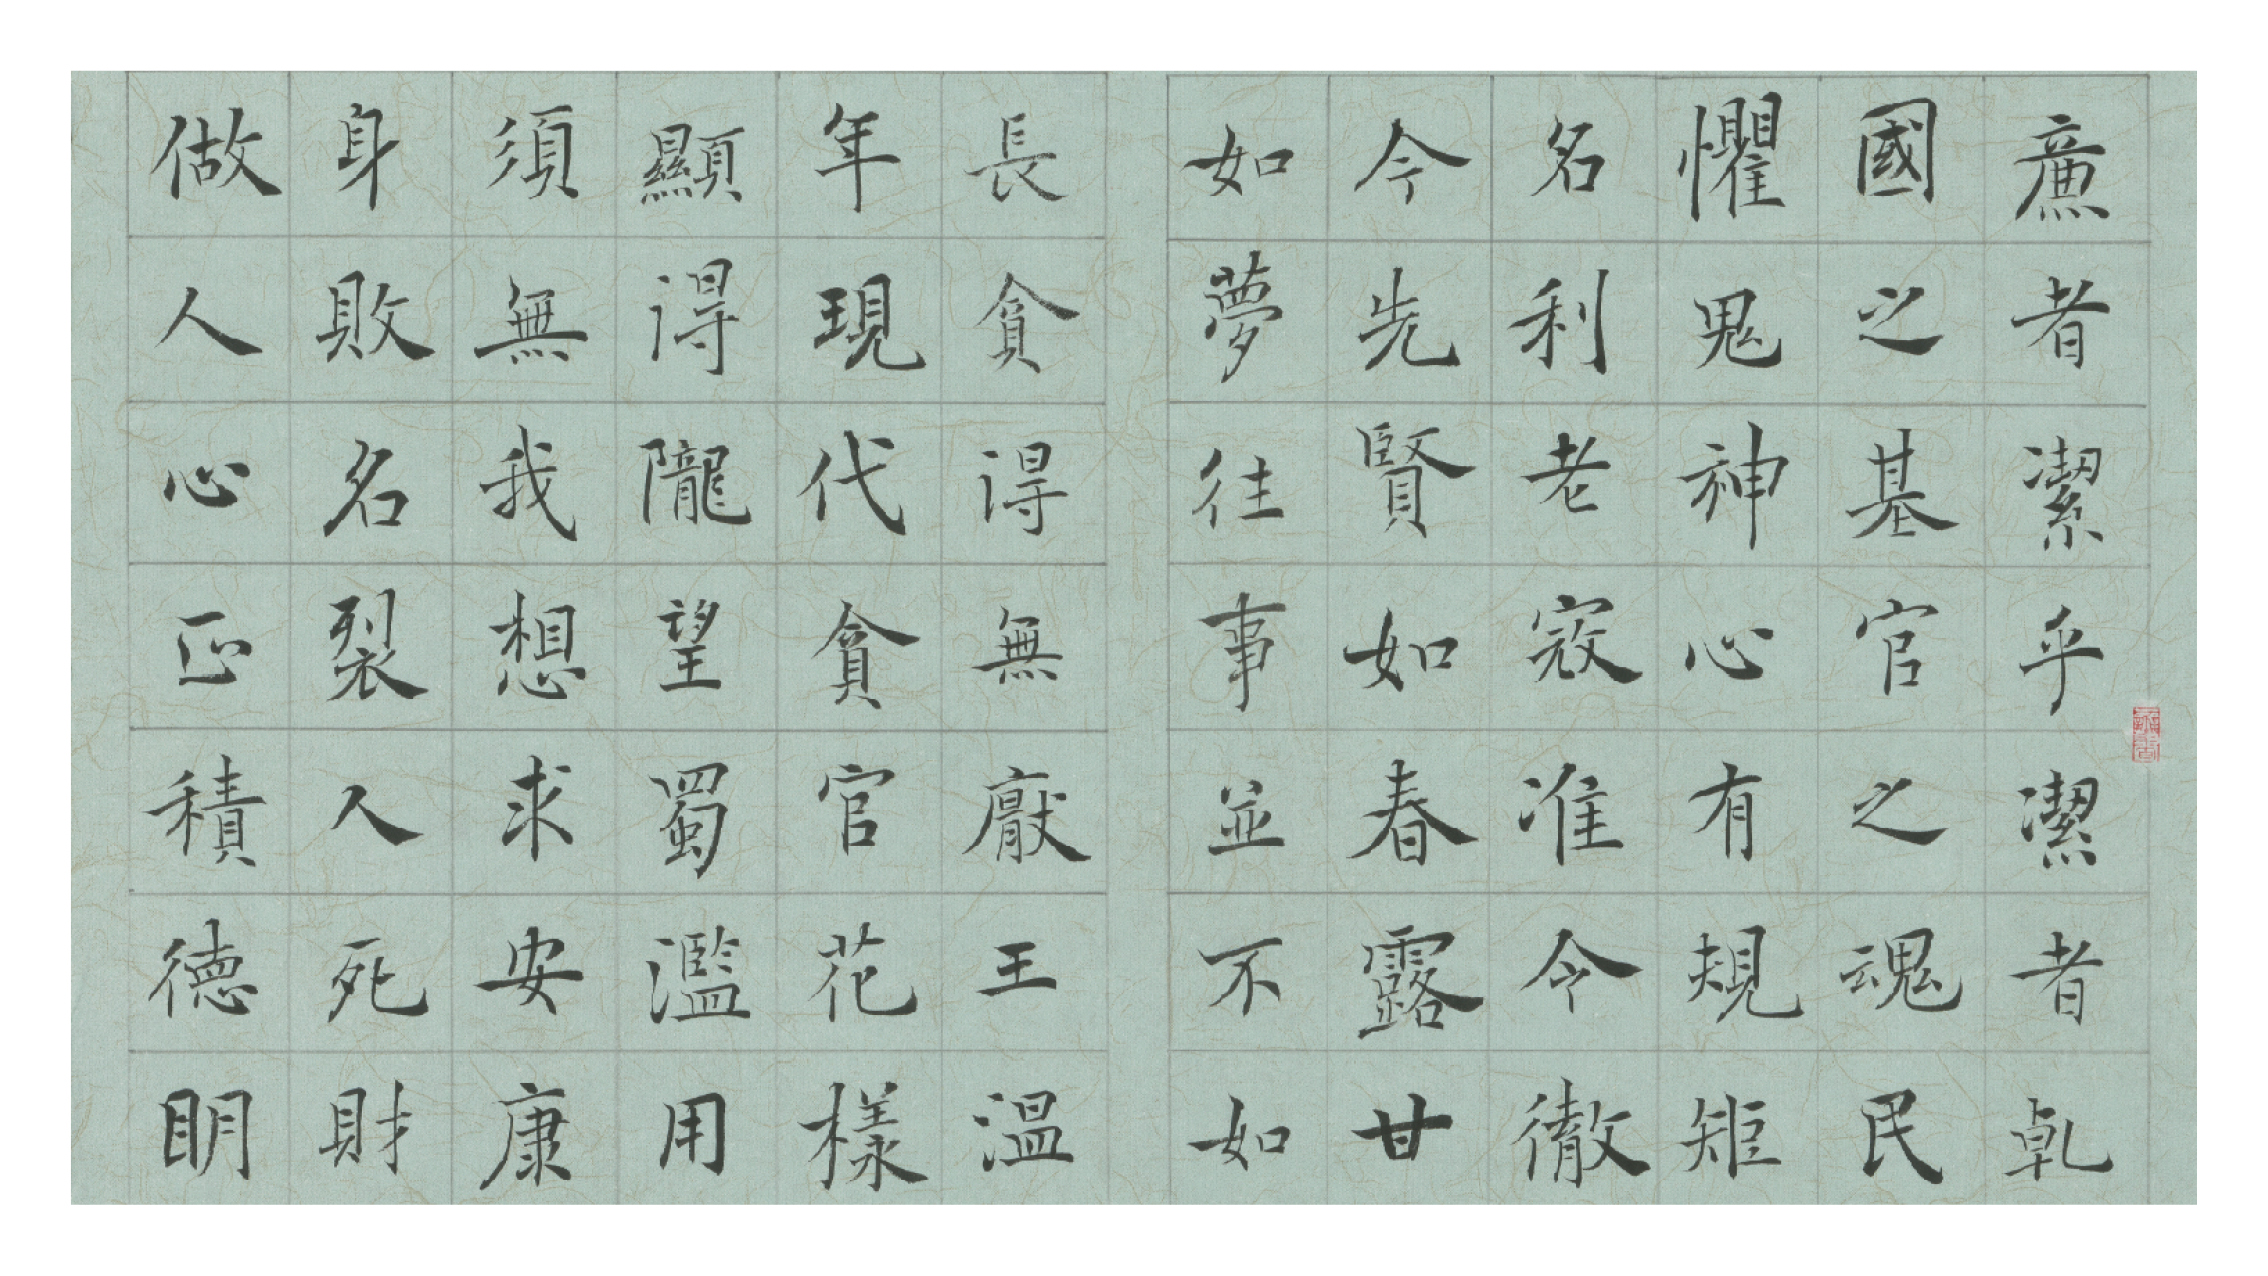 廉者潔乎潔者乹
國之基官之魂民
懼鬼神心有規矩
名利老寇准今徹
今先賢如春露甘
如夢往事並不如
長貪得無厭王温
年現代貪官花樣
顯得隴望蜀濫用
須無我想求安康
身敗名裂人死財
做人心正積德眀